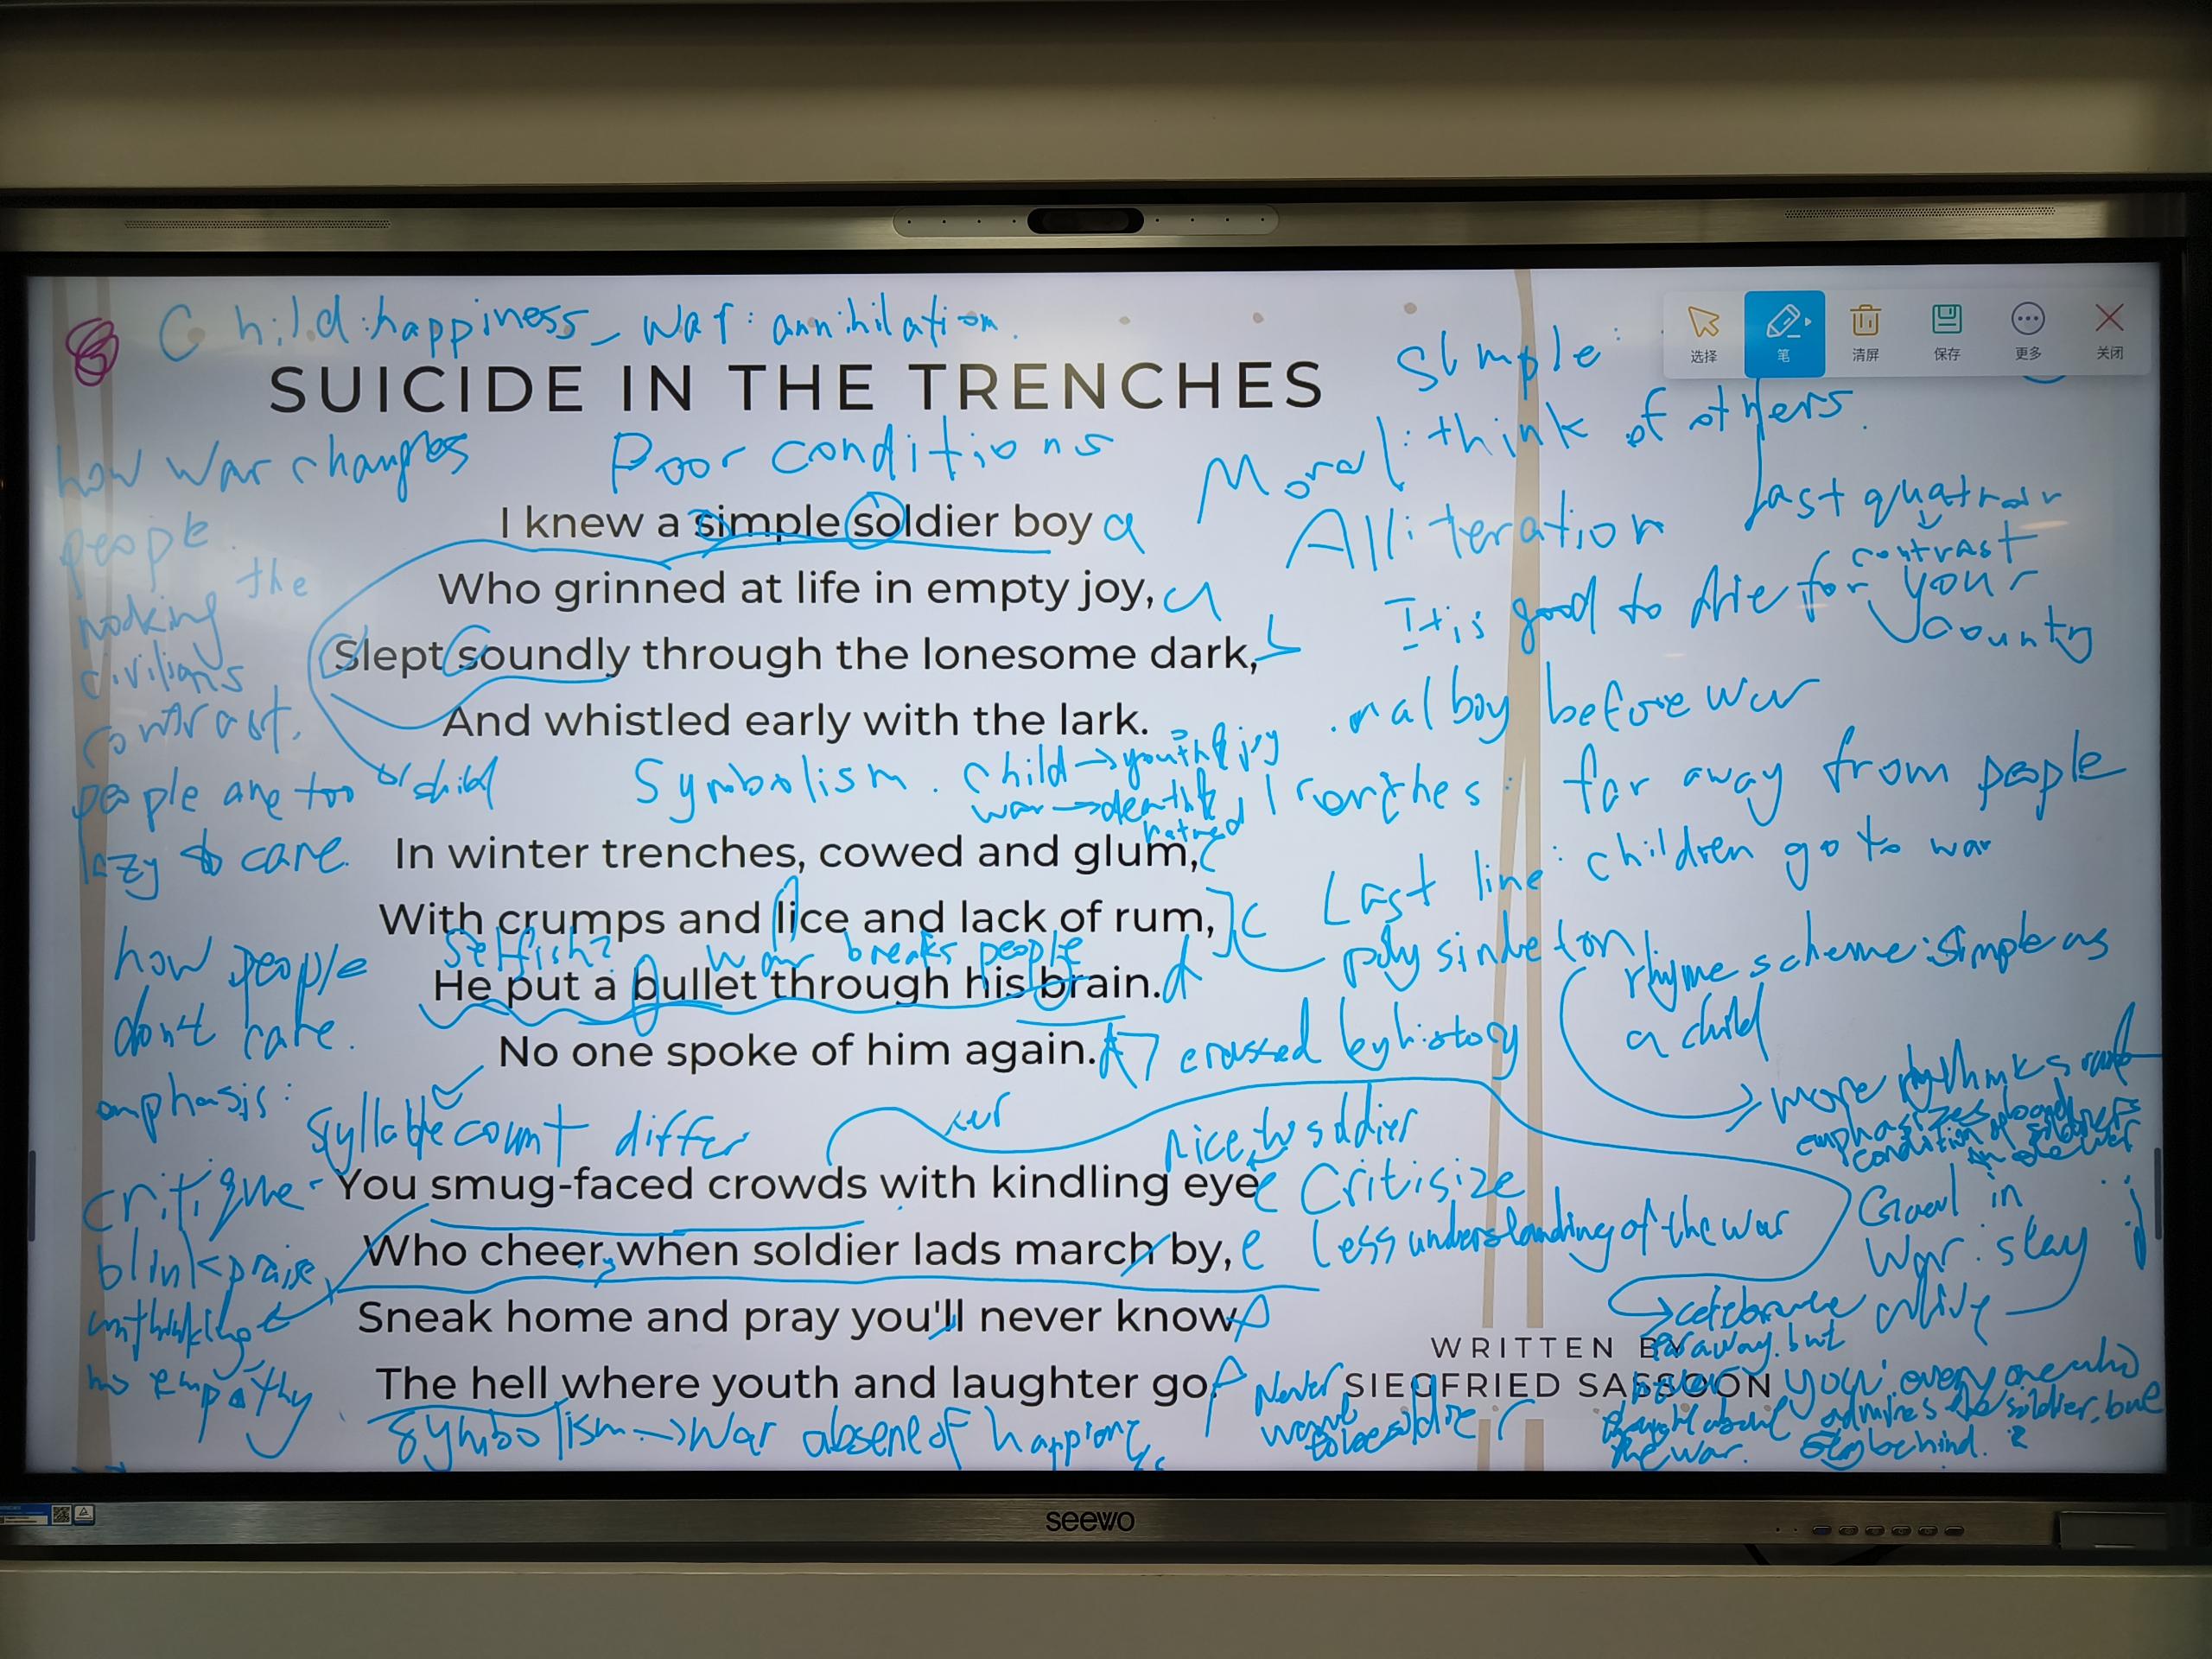 Child: happiness – war: annihilation.
选择 笔 清屏 保存 更多 关闭
Simple:
SUICIDE IN THE TRENCHES
Moral: think of others.
how war changes
people
Poor conditions
Last
contrast
I knew a simple soldier boy a
Alliteration
Who grinned at life in empty joy, a
the
civilians
contrast.
It is good to die for your
country
Slept soundly through the lonesome dark, b
And whistled early with the lark.
boy before war
people are too
lazy to care.
child
Symbolism. child → youth & joy
war → death &
hatred
far away from people
In winter trenches, cowed and glum, c
Last line: children go to war
With crumps and lice and lack of rum, c
polysindeton
rhyme scheme: simple as
a child
how people
don't care.
Selfish? war breaks people
He put a bullet through his brain. d
No one spoke of him again. d
erased by history
emphasis:
syllable count differ
more
emphasizes bad
condition of soldiers
nice to soldier
critique
blink praise
unthinking
no empathy
You smug-faced crowds with kindling eye e
Critisize
Who cheer when soldier lads march by, e
Less understanding of the war
Goal in
war: stay
alive
Sneak home and pray you'll never know
celebrate
far away. but
WRITTEN BY
The hell where youth and laughter go.
SIEGFRIED SASSOON
Never
want
to be soldire
thought about
the war.
you: everyone who
admires the soldier, but
stay behind.
Symbolism → war absene of
seewo